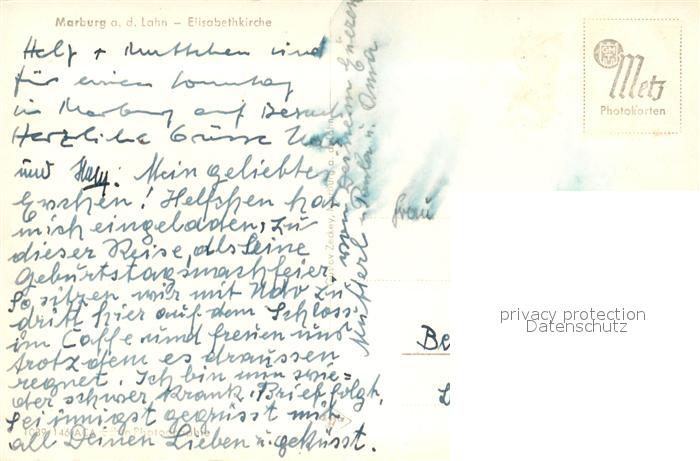 Marburg a. d. Lahn – Elisabethkirche
Helf + Muttchen sind
für einen Sonntag
in Marburg auf Besuch
Herzliche Grüsse Udo
und Helf. Mein geliebtes
Evchen! Helfchen hat
mich eingeladen, zu
dieser Reise, als seine
Geburtstagsnachfeier.
So sitzen wir mit Udo zu
dritt hier auf dem Schloss
im Caffe und freuen uns
trotzdem es draussen
regnet. Ich bin nun wie=
der schwer krank. Brief folgt.
Sei innigst gegrüsst mit
all Deinen Lieben u. geküsst.
von Deinem
Mutterl u. Anna
Frau
Metz
Photokarten
privacy protection
Datenschutz